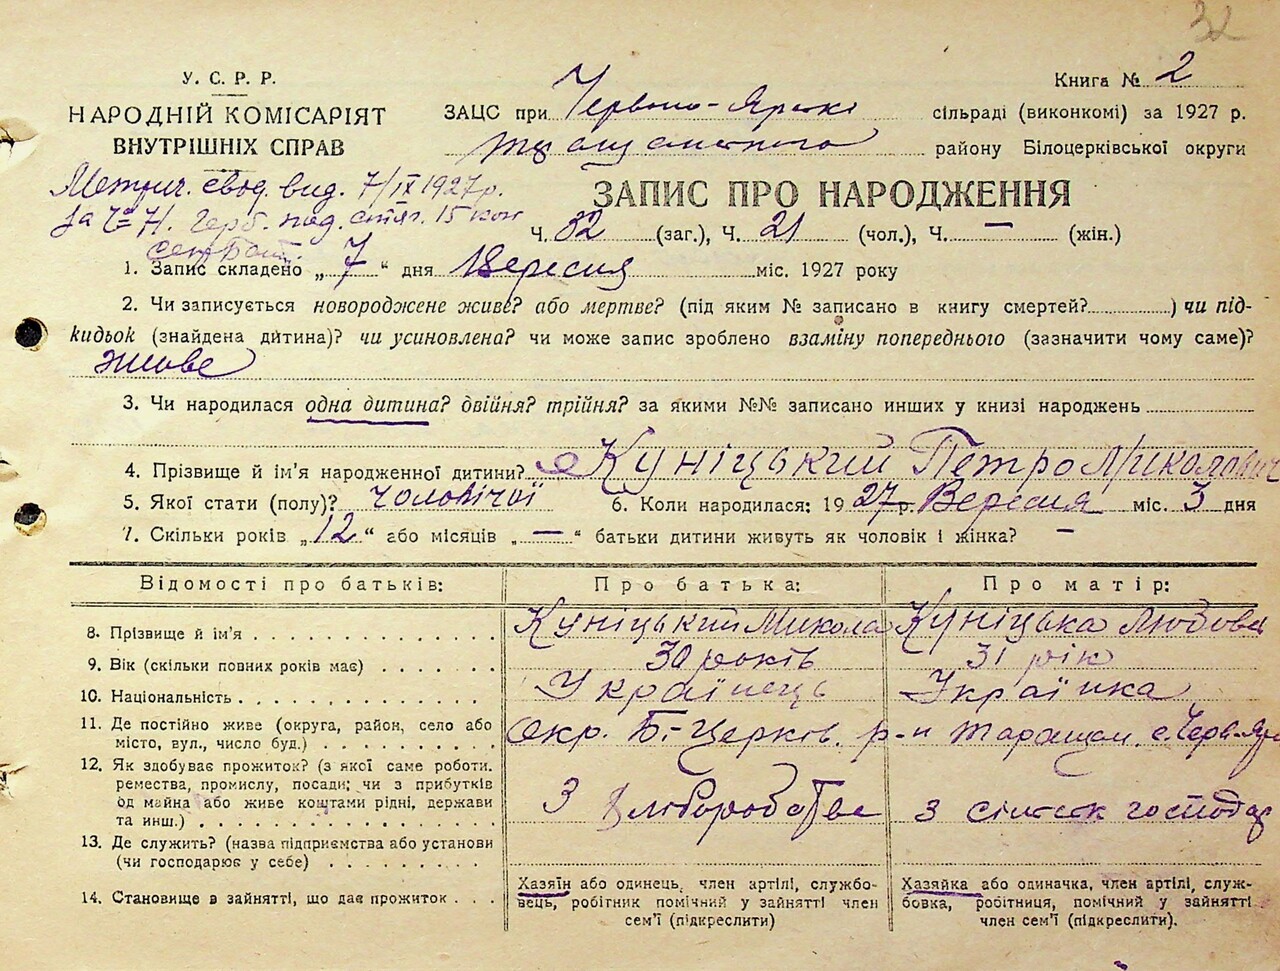 32
У. С. Р. Р.
НАРОДНІЙ КОМІСАРІЯТ
ВНУТРІШНІХ СПРАВ
Книга № 2
ЗАЦС при Червоно-Ярські сільраді (виконкомі) за 1927 р.
району Білоцерківської округи
Метрич. свод. вид. 7/IX 1927 р.
за Ч= 71. Герб. под. стяг. 15 коп
ЗАПИС ПРО НАРОДЖЕННЯ
Ч. 32 (заг.), Ч. 21 (чол.), Ч. — (жін.)
1. Запис складено „ 7 “ дня Вересня міс. 1927 року
2. Чи записується новороджене живе? або мертве? (під яким № записано в книгу смертей? ) чи під-
кидьок (знайдена дитина)? чи усиновлена? чи може запис зроблено взаміну попереднього (зазначити чому саме)?
живе
3. Чи народилася одна дитина? двійня? трійня? за якими №№ записано инших у книзі народжень
4. Прізвище й ім'я народженної дитини? Куніцький Петро Миколович
5. Якої стати (полу)? чоловічої 6. Коли народилася: 19 27 р. Вересня міс. 3 дня
7. Скільки років „ 12 “ або місяців „ — “ батьки дитини живуть як чоловік і жінка? —
Відомості про батьків: Про батька: Про матір:
8. Прізвище й ім'я Куніцький Микола Куніцька Любов
9. Вік (скільки повних років має) 30 років 31 рік
10. Національність Українець Українка
11. Де постійно живе (округа, район, село або
місто, вул., число буд.) окр. Б-Церків. р-н Таращан. с. Черв-Яр
12. Як здобуває прожиток? (з якої саме роботи.
ремества, промислу, посади; чи з прибутків
од майна або живе коштами рідні, держави
та инш.) З хліборобства з сільськ господар
13. Де служить? (назва підприємства або установи
(чи господарює у себе)
14. Становище в зайнятті, що дає прожиток
Хазяїн або одинець, член артілі, службо-
вець, робітник помічний у зайнятті член
сем'ї (підкреслити)
Хазяйка або одиначка, член артілі, служ-
бовка, робітниця, помічний у зайнятті
член сем'ї (підкреслити).